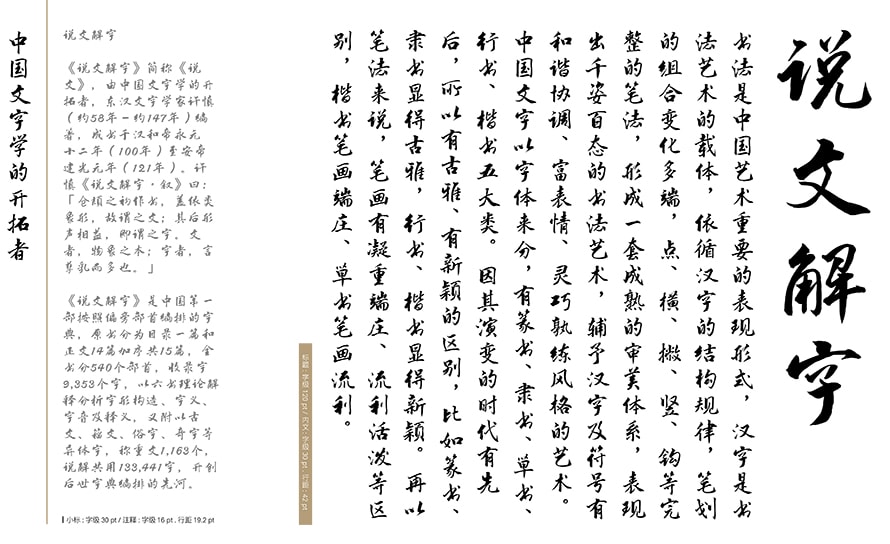 说文解字
书法是中国艺术重要的表现形式，汉字是书
法艺术的载体，依循汉字的结构规律，笔划
的组合变化多端，点、横、撇、竖、钩等完
整的笔法，形成一套成熟的审美体系，表现
出千姿百态的书法艺术，辅予汉字及符号有
和谐协调、富表情、灵巧熟练风格的艺术。
中国文字以字体来分，有篆书、隶书、草书、
行书、楷书五大类。因其演变的时代有先
后，所以有古雅、有新颖的区别，比如篆书、
隶书显得古雅，行书、楷书显得新颖。再以
笔法来说，笔画有凝重端庄、流利活泼等区
别，楷书笔画端庄、草书笔画流利。
标题 : 字级 120 pt / 内文 : 字级 30 pt . 行距 : 42 pt
说文解字
《说文解字》简称《说
文》，由中国文字学的开
拓者，东汉文字学家许慎
（约58年－约147年）编
著，成书于汉和帝永元
十二年（100年）至安帝
建光元年（121年）。许
慎《说文解字·叙》曰：
「仓颉之初作书，盖依类
象形，故谓之文；其后形
声相益，即谓之字。文
者，物象之本；字者，言
孳乳而多也。」
《说文解字》是中国第一
部按照偏旁部首编排的字
典，原书分为目录一篇和
正文14篇加序共15篇，全
书分540个部首，收录字
9,353个字，以六书理论解
释分析字形构造、字义、
字音及释义，又附以古
文、籀文、俗字、奇字等
异体字，称重文1,163个，
说解共用133,441字，开创
后世字典编排的先河。
小标 : 字级 30 pt / 注释 : 字级 16 pt . 行距 19.2 pt
中国文字学的开拓者